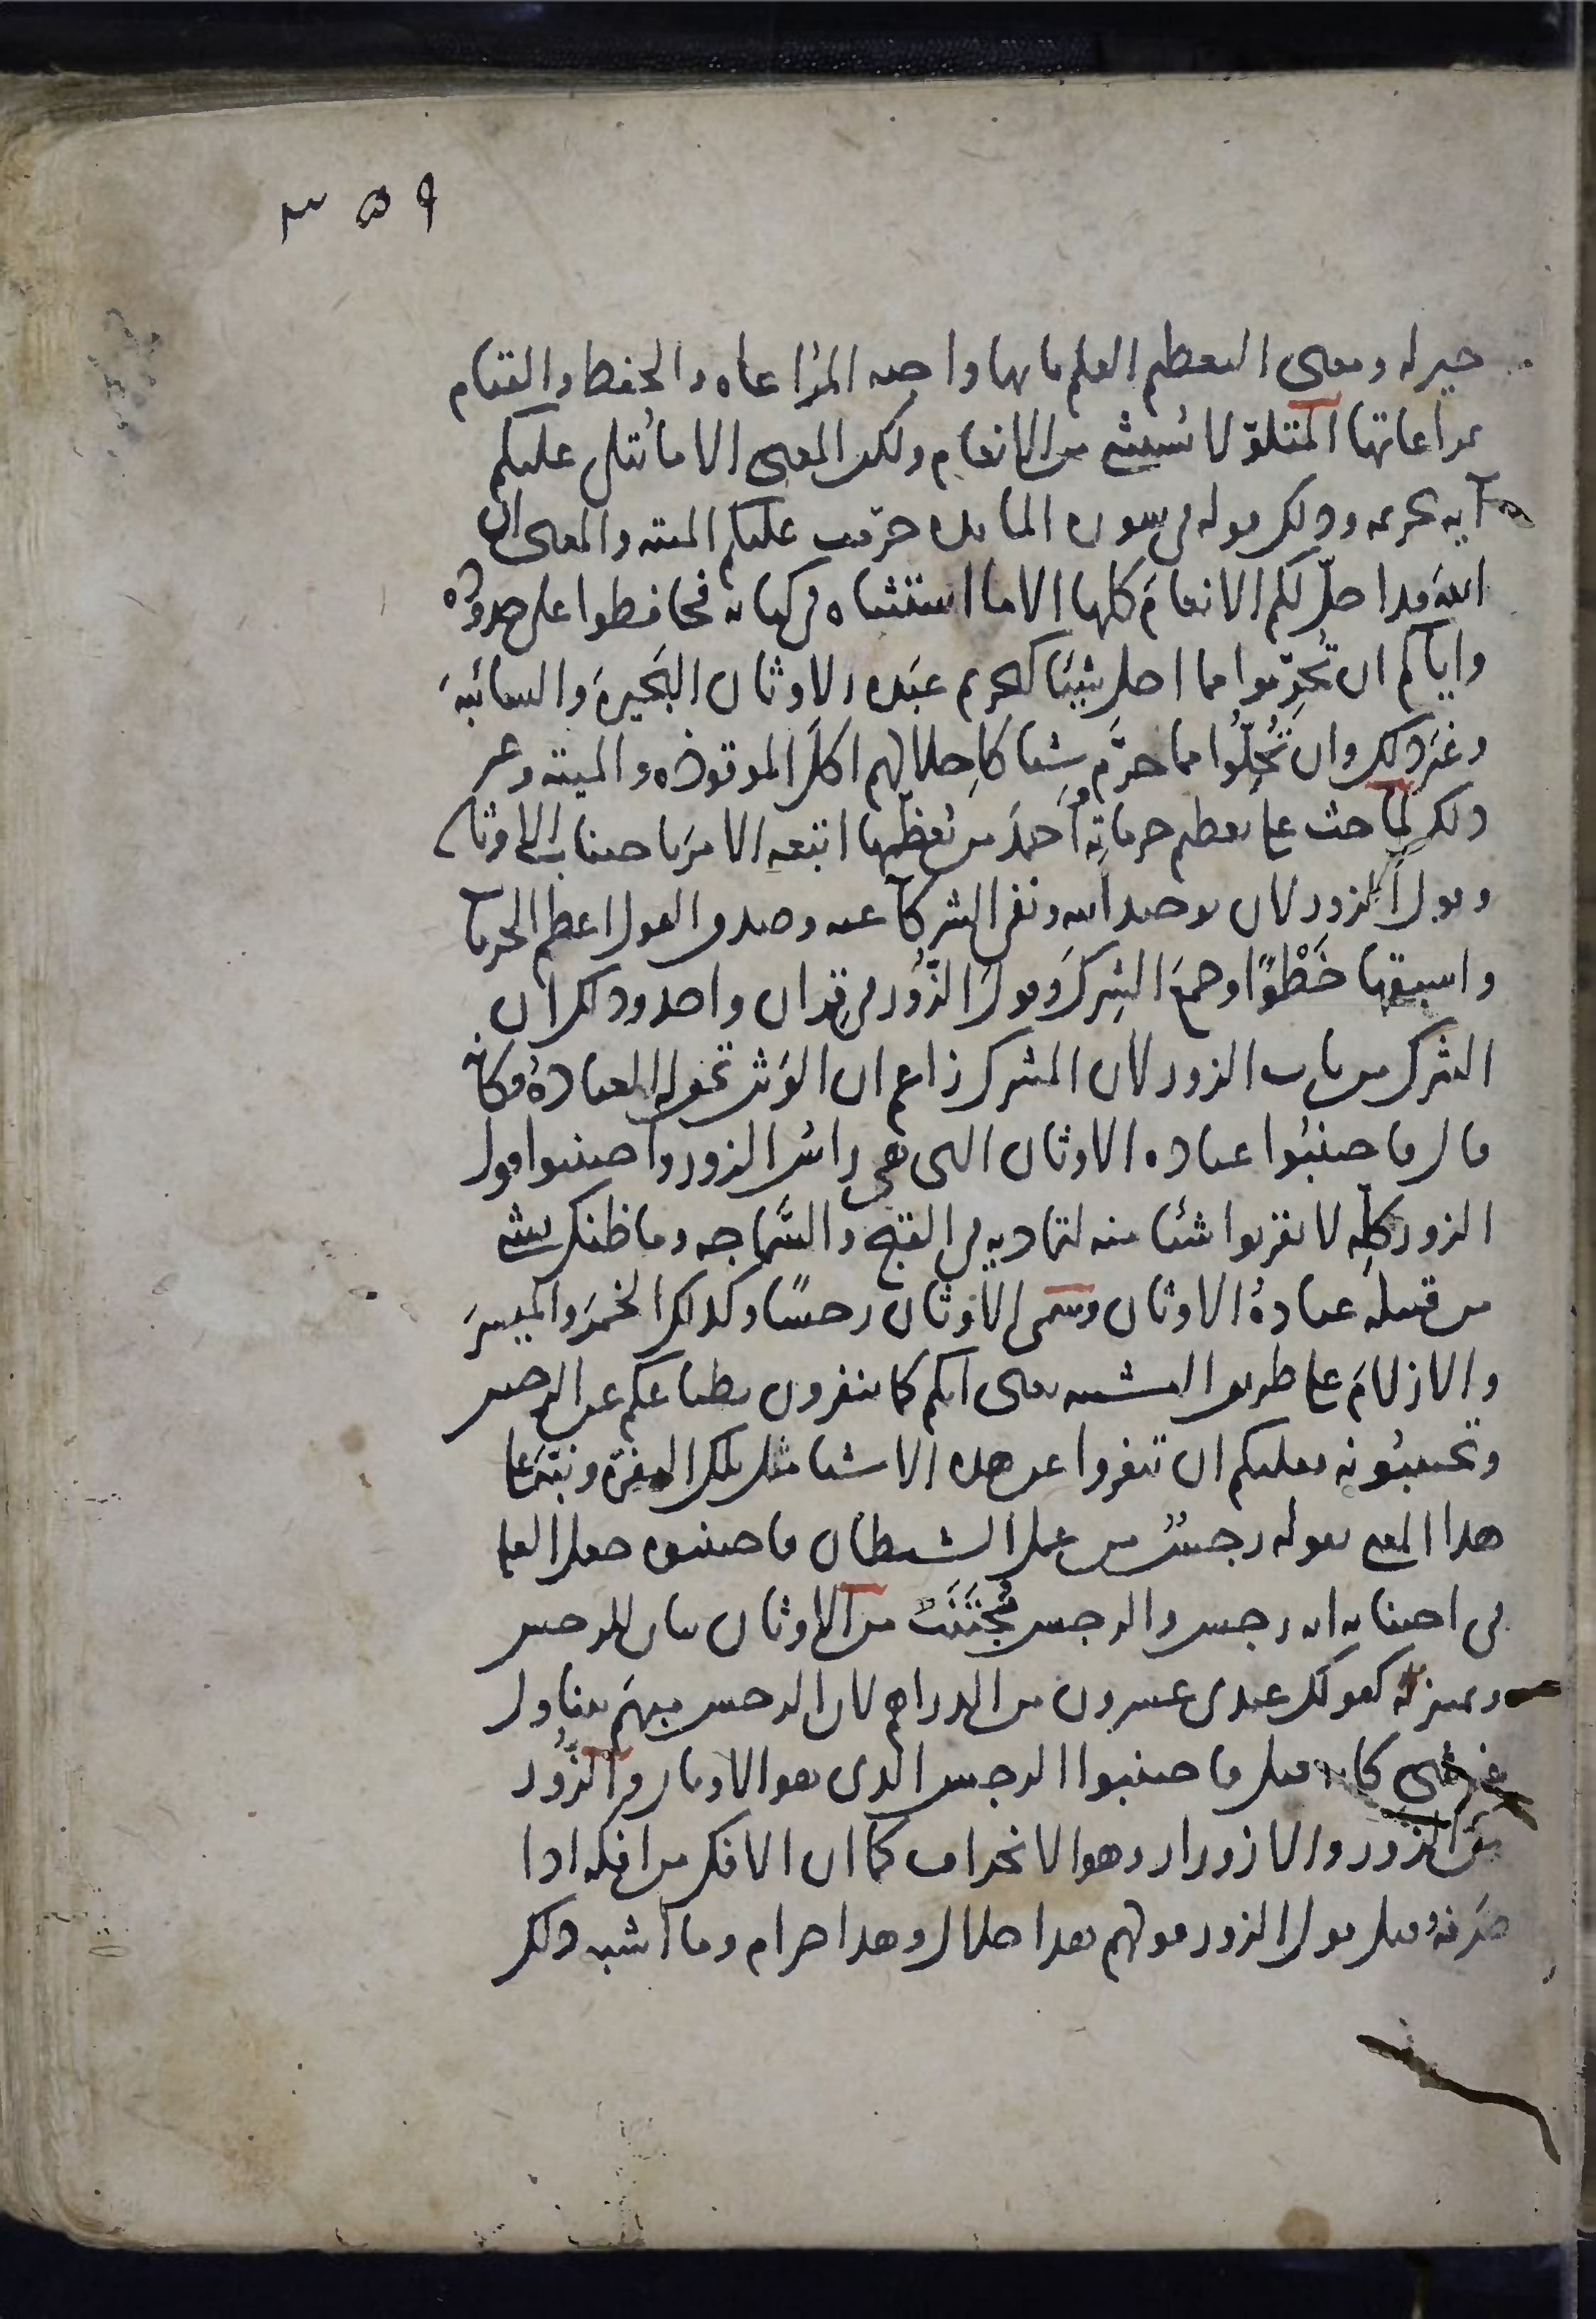 ٣٥٩
خير له ومعنى التعظيم العلم بانها واجبة المراعاه والحفظ والقيام
بمراعاتها المتلوّ لا يُستثنى من الانعام ولكن المعنى الا ما يُتلى عليكم
آية تحريمه وذلك قوله في سورة المايده حرّمت عليكم الميتة والمعنى ان
الله قد احلّ لكم الانعامَ كلها الا ما استثناه في كتابه فحافظوا على حدوده
واياكم ان تُحرّموا مما احل شيئا كتحريم عَبَدة الاوثان البَحيرةَ والسائبةَ
وغير ذلك وان تُحِلّوا مما حرَّم شيئا كاِحلالهم اكلَ الموقوذه والميتة وغير
ذلك لما حث على تعظيم حرماتِه واَحمدَ من يُعظّمها اتبعه الامرَ باجتناب الاوثان
وقول الزور لان توحيد الله ونفى الشركآ عنه وصدق القول اعظم الحرمات
واسبقها خَطْوًا وجمعَ الشِركَ وقولَ الزُّور في قِران واحد وذلك ان
الشرك من باب الزور لان المشرك زاعم ان الوَثن تحق له العبادةُ فكانه
قال فاجتنبُوا عبادة الاوثان التى هى راسُ الزور واجتنبوا قول
الزور كلِّه لا تقربوا شيئا منه لتماديه في القبح والسَّماجه وما ظنك بشىء
من قبيله عبادةُ الاوثان وسمى الاوثان رجسًا وكذلك الخمرَ والميسرَ
والازلامَ على طريق التشبيه يعنى انكم كما تنفرون بطباعكم عن الرجس
وتجتنبُونه فعليكم ان تنفروا عن هذه الاشيا مثل تلك النفرة ونبّهَ على
هذا المعنى بقوله رجسٌ من عمل الشيطان فاجتنبوه جعل العلة
في اجتنابه انه رجس والرجس مُجْتَنَبٌ من الاوثان بيان للرجس
وتمييز له كقولك عندى عشرون من الدراهم لان الرجس مبهم يتناول
غير شىء كانه قيل فاجتنبوا الرجس الذى هو الاوثان والزُّور
من الزور والازورار وهو الانحراف كما ان الافك من افكه اذا
صَرفهُ وقيل قول الزور قولهم هذا حلال وهذا حرام وما اشبه ذلك